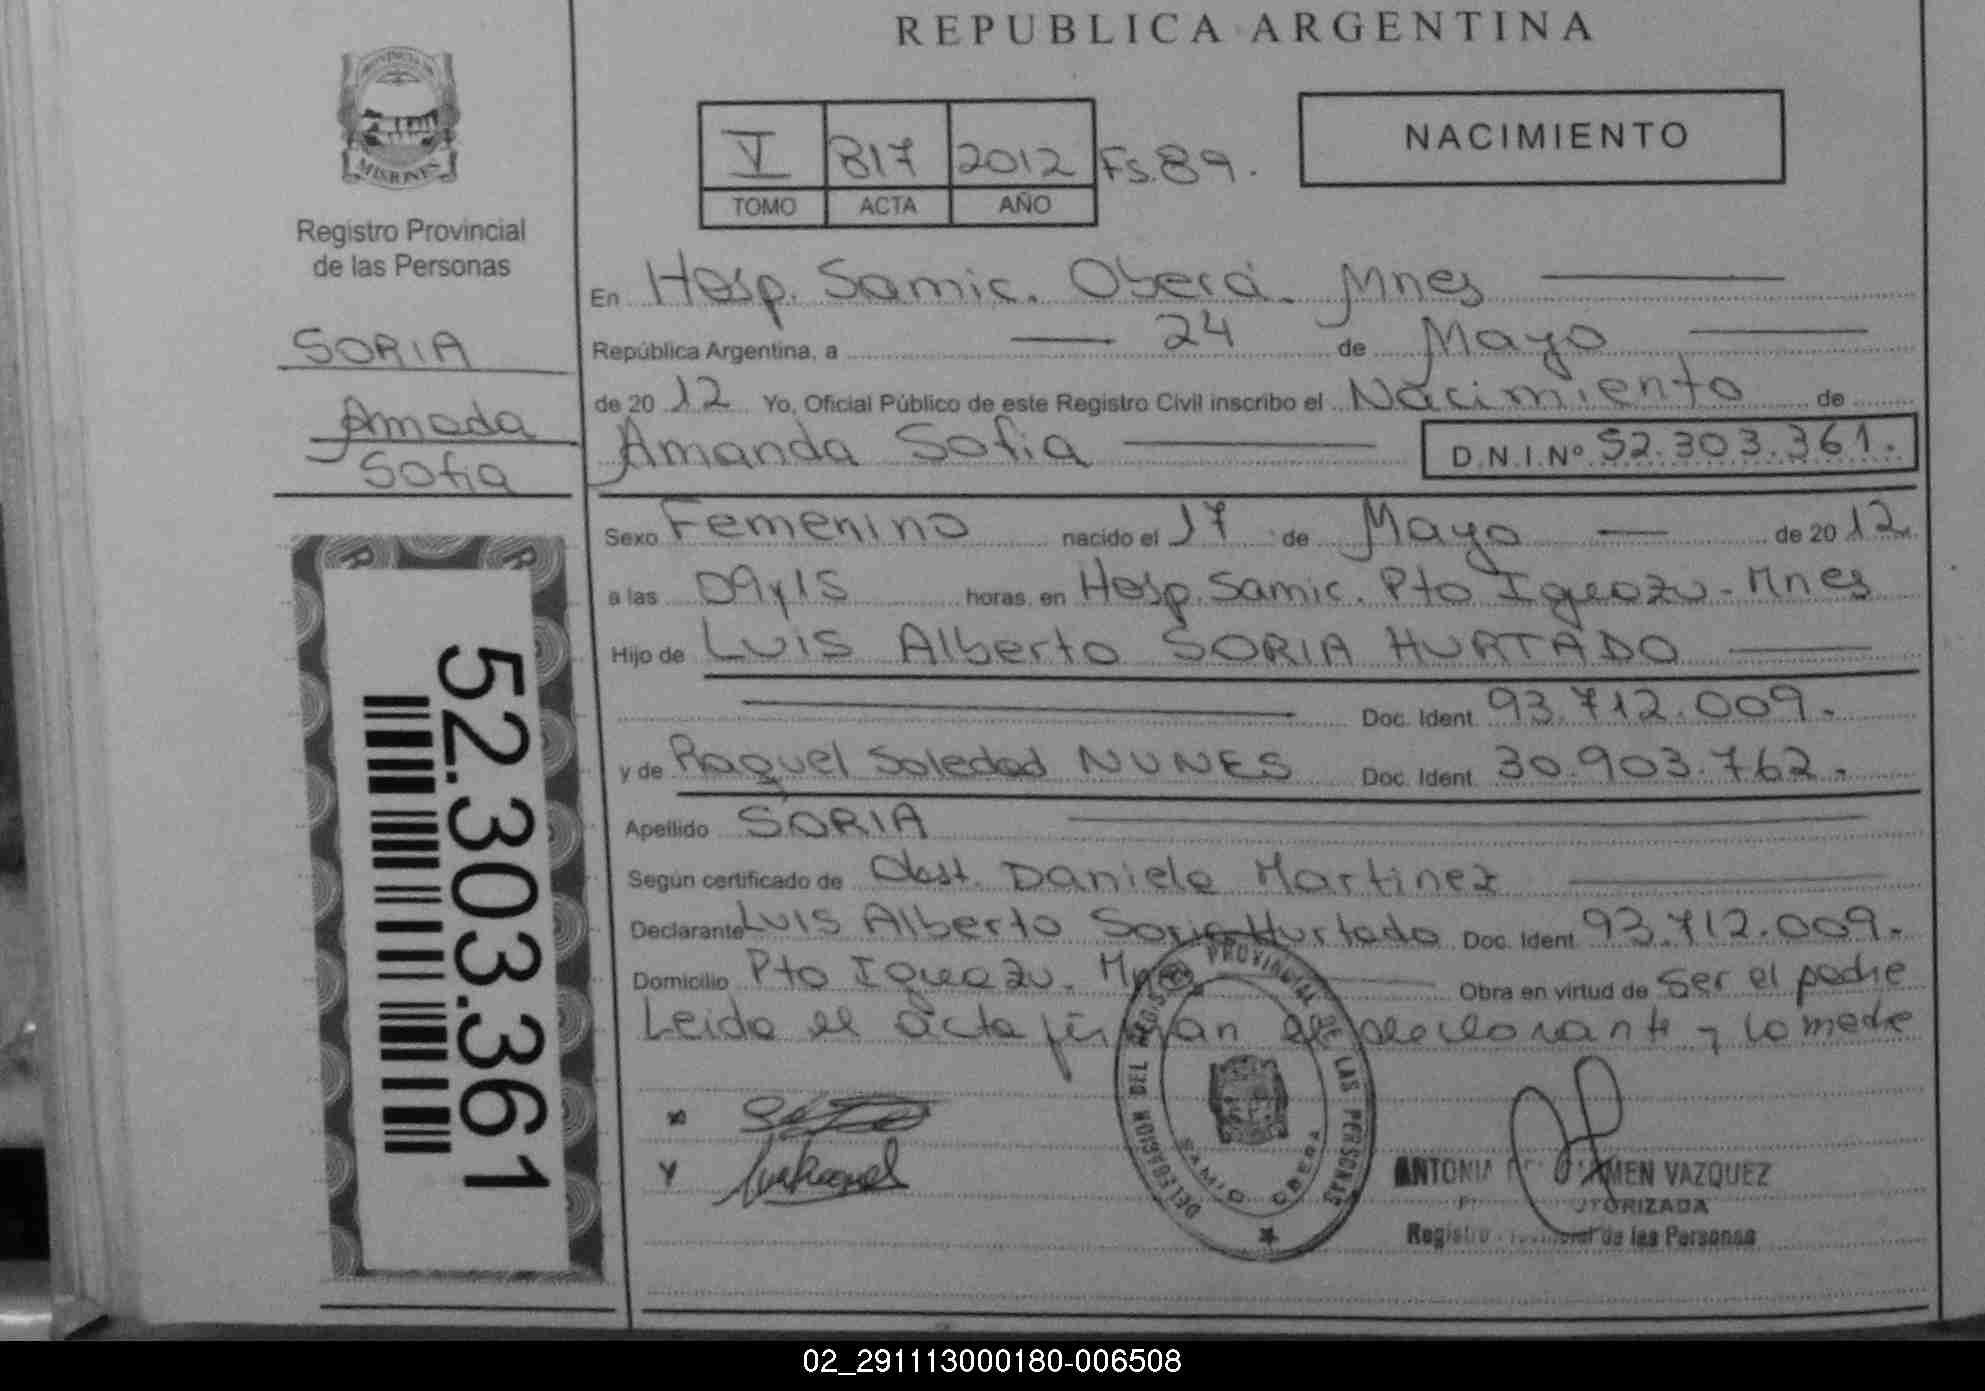 REPUBLICA ARGENTINA
PROVINCIA DE
MISIONES
Registro Provincial
de las Personas
SORIA
Amada
Sofia
52.303.361
V 817 2012 Fs.89.
TOMO ACTA AÑO
NACIMIENTO
En Hosp. Samic. Oberá. Mnes
República Argentina, a 24 de Mayo
de 2012 Yo, Oficial Público de este Registro Civil inscribo el Nacimiento de
Amanda Sofia D.N.I.Nº 52.303.361.
Sexo Femenino nacido el 17 de Mayo de 2012.
a las 09y15 horas, en Hosp. Samic. Pto Iguazu - Mnes
Hijo de LUIS Alberto SORIA HURTADO
Doc. Ident. 93.712.009.
y de Raquel Soledad NUNES Doc. Ident. 30.903.762.
Apellido SORIA
Según certificado de Obst. Daniela Martinez
Declarante LUIS Alberto Soria Hurtado Doc. Ident. 93.712.009.
Domicilio Pto Iguazu. Mnes Obra en virtud de ser el padre
Leida el acta firman el declarante y la madre
DELEGACION DEL REG. PROVINCIAL DE LAS PERSONAS
SAMIC OBERA
ANTONIA CARMEN VAZQUEZ
AUTORIZADA
Registro Provincial de las Personas
02_291113000180-006508